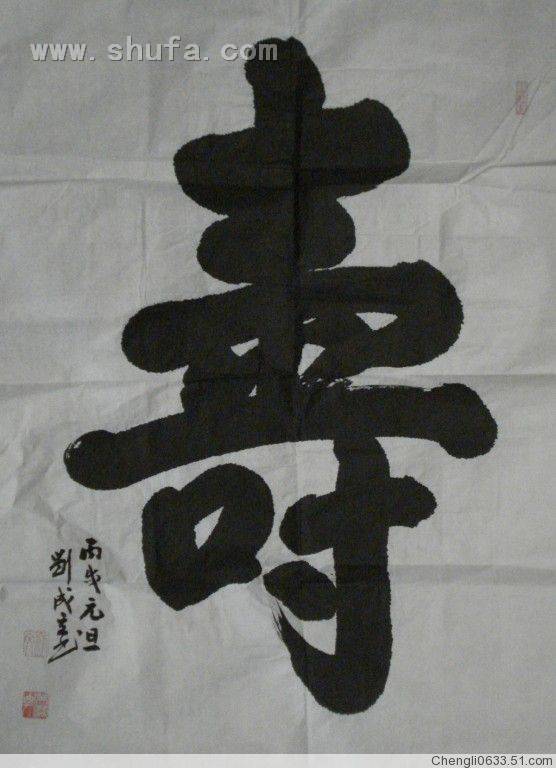 www.shufa.com
壽
丙戌元旦
劉成
Chengli0633.51.com